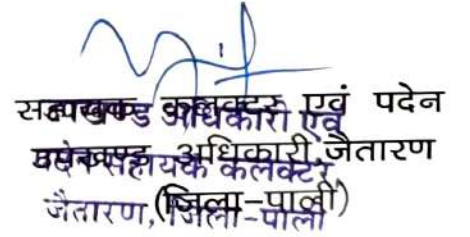 सहायक कलक्टर एवं पदेन
उपखण्ड अधिकारी, जैतारण
(जिला-पाली)
उपखण्ड अधिकारी एवं
पदेन सहायक कलक्टर,
जैतारण, जिला-पाली